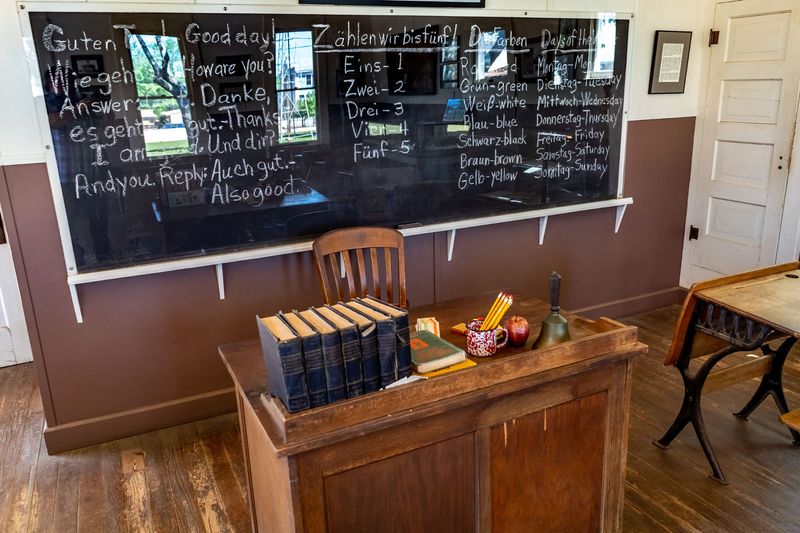 Guten T Good day!
Wie geh How are you?
Answer: Danke,
es geht gut. Thanks
I am g Und dir?
And you. Reply: Auch gut. -
Also good.
Zählen wir bis fünf!
Eins - 1
Zwei - 2
Drei - 3
Vier 4
Fünf - 5
Die Farben
Ro red
Grün - green
Weiß - white
Blau - blue
Schwarz - black
Braun - brown
Gelb - yellow
Days of the
Montag - Mo
Dienstag - Tuesday
Mittwoch - Wednesday
Donnerstag - Thurs
Freitag - Friday
Samstag - Saturday
Sonntag - Sunday